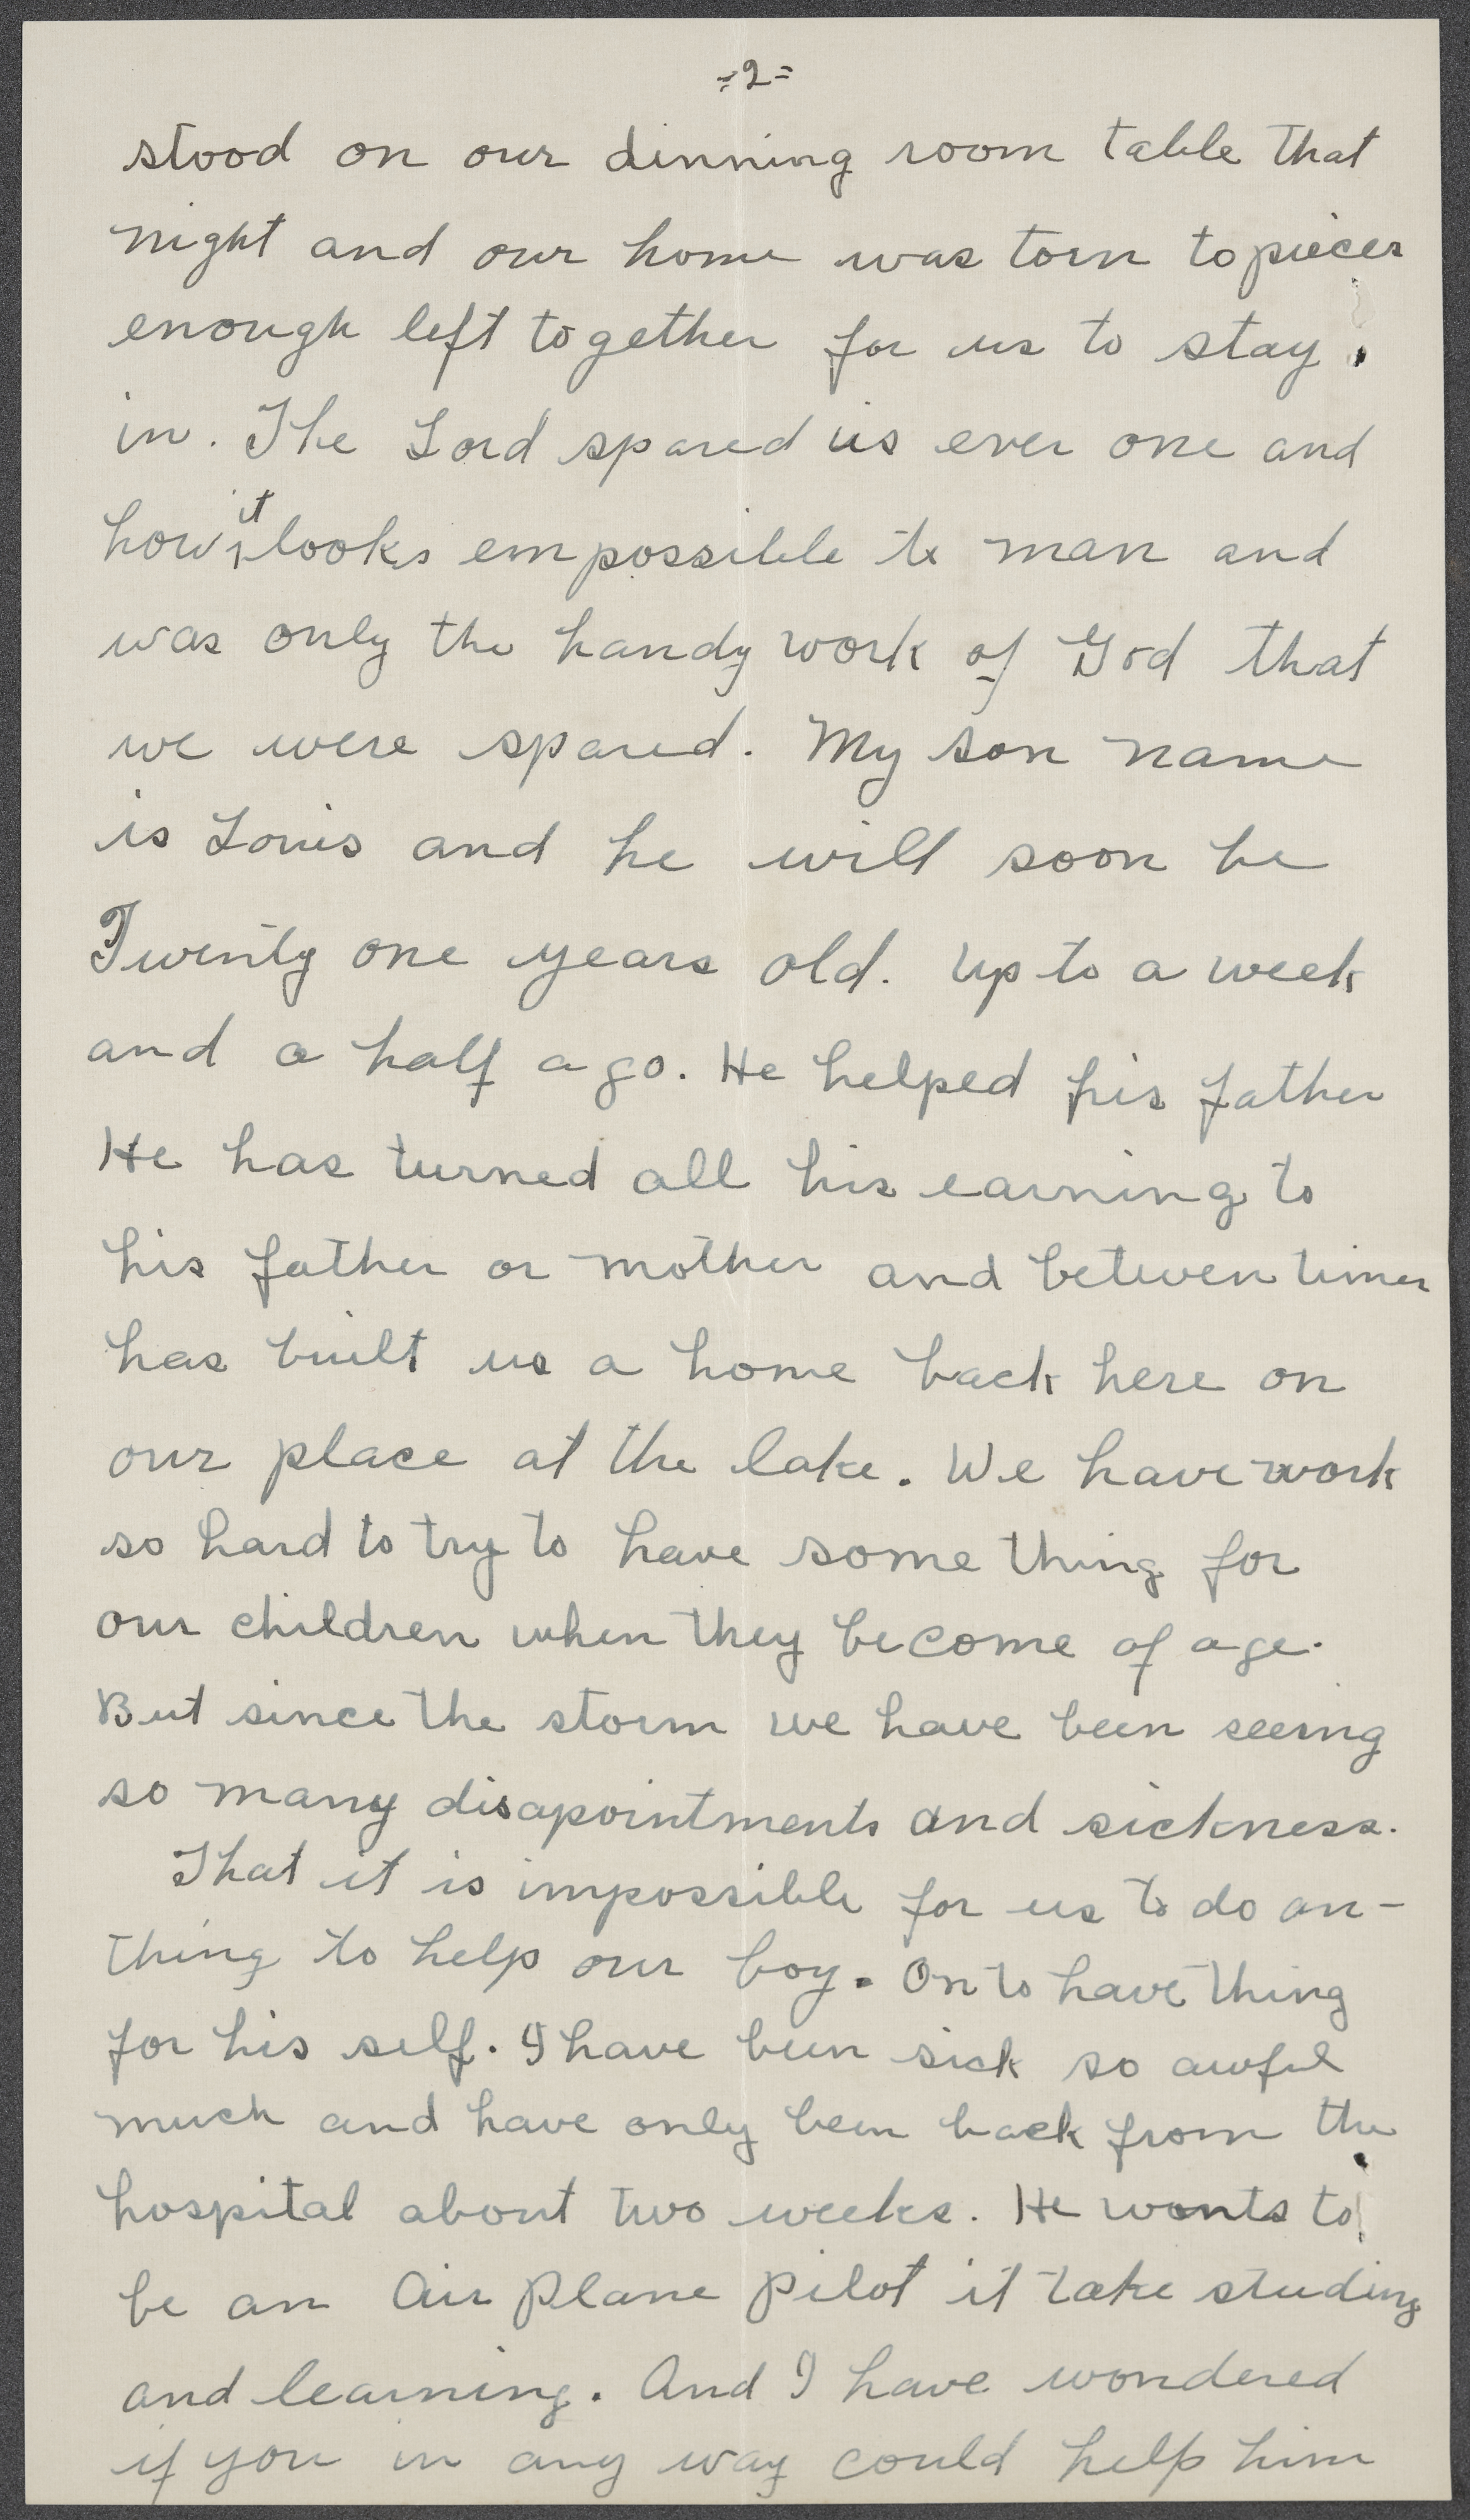 -2-
stood on our dinning room table that
night and our home was torn to pieces
enough left together for us to stay
in. The Lord spared us ever one and
how it looks empossible to man and
was only the handy work of God that
we were spared. My son name
is Louis and he will soon be
Twenty one years old. up to a week
and a half ago. He helped his father
He has turned all his earning to
his father or mother and between times
has built us a home back here on
our place at the lake. We have work
so hard to try to have some thing for
our children when they become of age.
But since the storm we have been seeing
so many disapointments and sickness.
That it is impossible for us to do an-
thing to help our boy. On to have thing
for his self. I have been sick so awful
much and have only been back from the
hospital about two weeks. He wonts to
be an Air Plane pilot it take studing
and learning. And I have wondered
if you in any way could help him